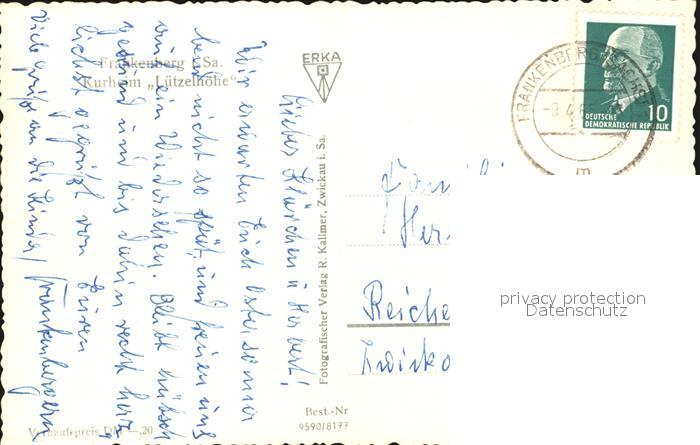 Frankenberg i. Sa.
Kurheim „Lützelhöhe"
ERKA
Liebes Klärchen u. Herbert!
Wir erwarten Euch Ostersonna
bend nicht so spät, und freuen uns
auf ein Wiedersehen. Bleibt hübsch
gesund und bis dahin recht herz
lichst gegrüßt von Euren
Frankenbergern
Viele Grüße an die Kinder
Fotografischer Verlag R. Kallmer, Zwickau i. Sa.
Best.-Nr
9590/8177
Verkaufspreis DM —,20
FRANKENBERG (SACHS)
DEUTSCHE
DEMOKRATISCHE REPUBLIK
10
Fami
Her
Reiche
Zwicko
privacy protection
Datenschutz